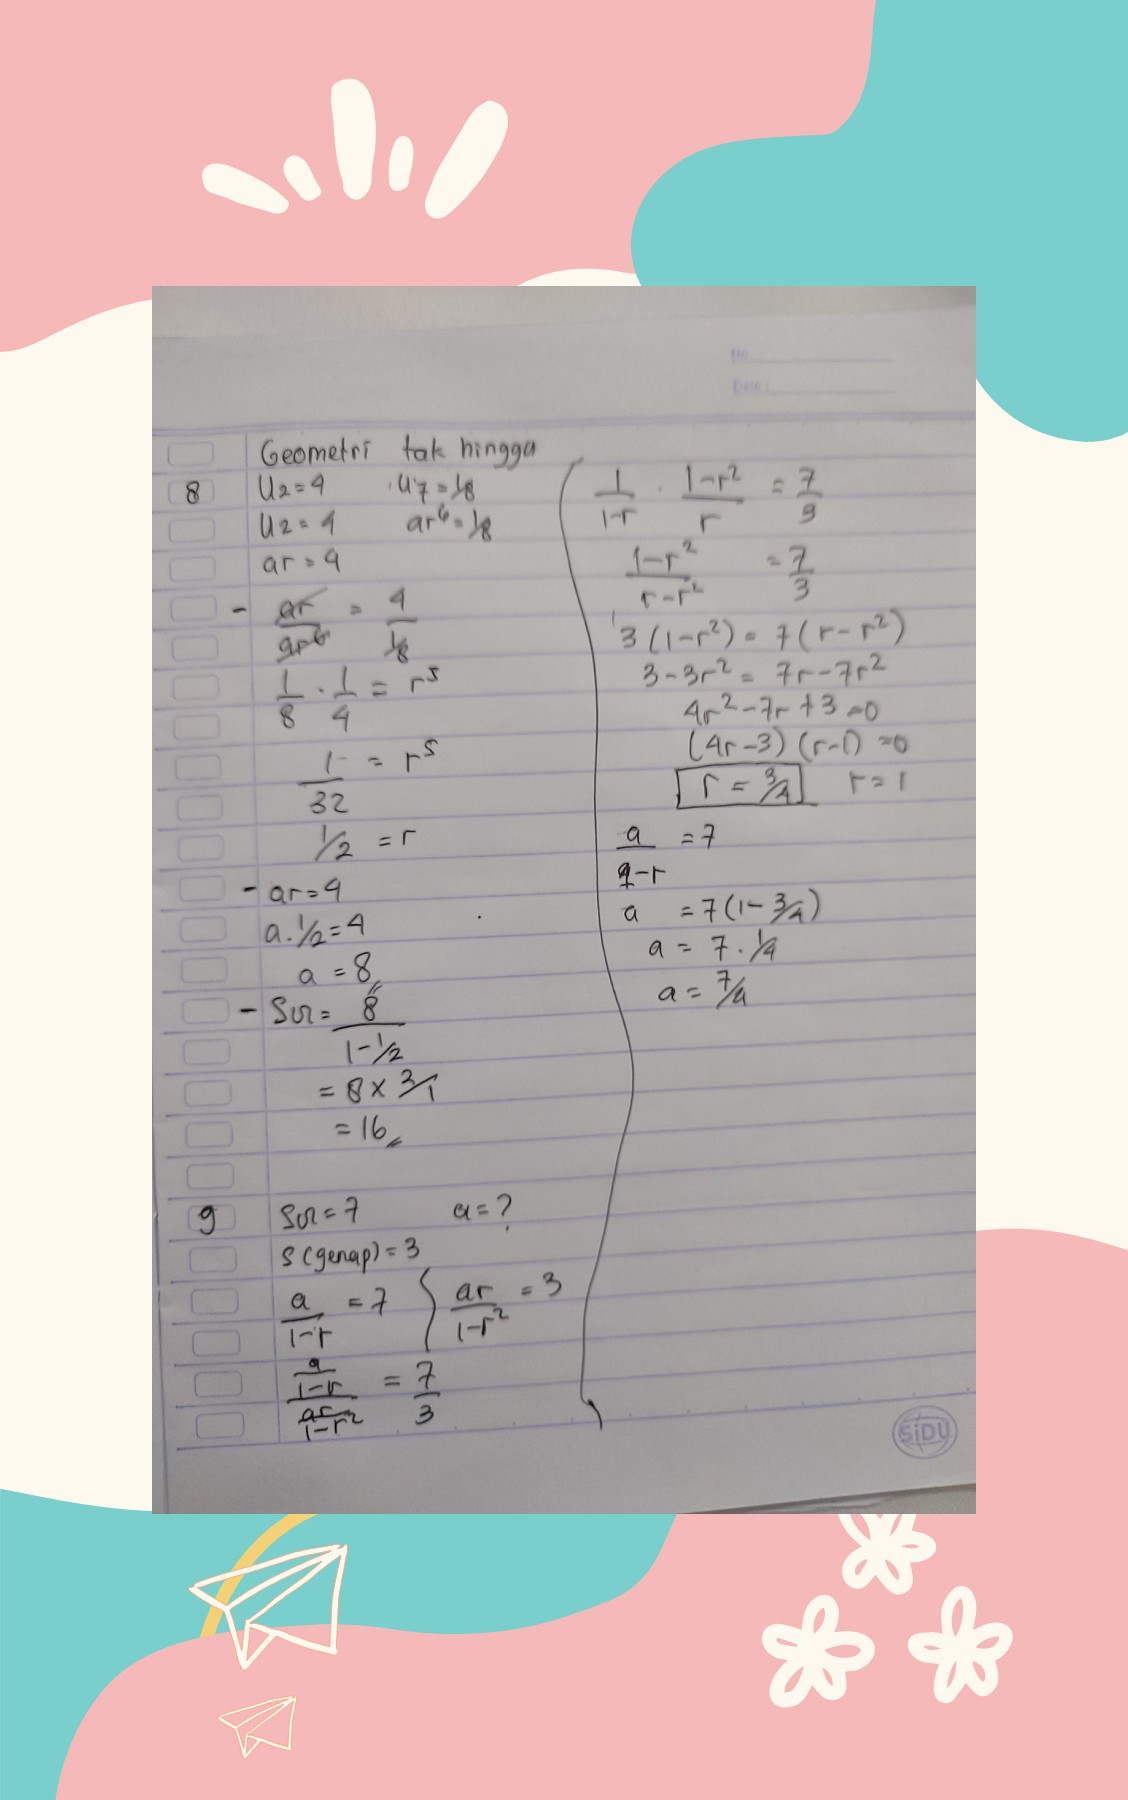 No.
Date:
Geometri tak hingga
8
U2=4 U7=1/8
U2=4 ar^6=1/8
ar=4
- ar/ar^6 = 4/(1/8)
1/8 . 1/4 = r^5
1/32 = r^5
1/2 = r
- ar=4
a.1/2=4
a=8
- S∞= 8/(1-1/2)
= 8 x 2/1
= 16
9
S∞=7 a=?
S(genap)=3
a/(1-r) = 7 { ar/(1-r^2) = 3
(a/(1-r))/(ar/(1-r^2)) = 7/3
1/(1-r) . (1-r^2)/r = 7/3
(1-r^2)/(r-r^2) = 7/3
3(1-r^2) = 7(r-r^2)
3-3r^2 = 7r-7r^2
4r^2-7r+3=0
(4r-3)(r-1)=0
r=3/4 r=1
a/(1-r) = 7
a = 7(1-3/4)
a = 7.1/4
a = 7/4
SiDU